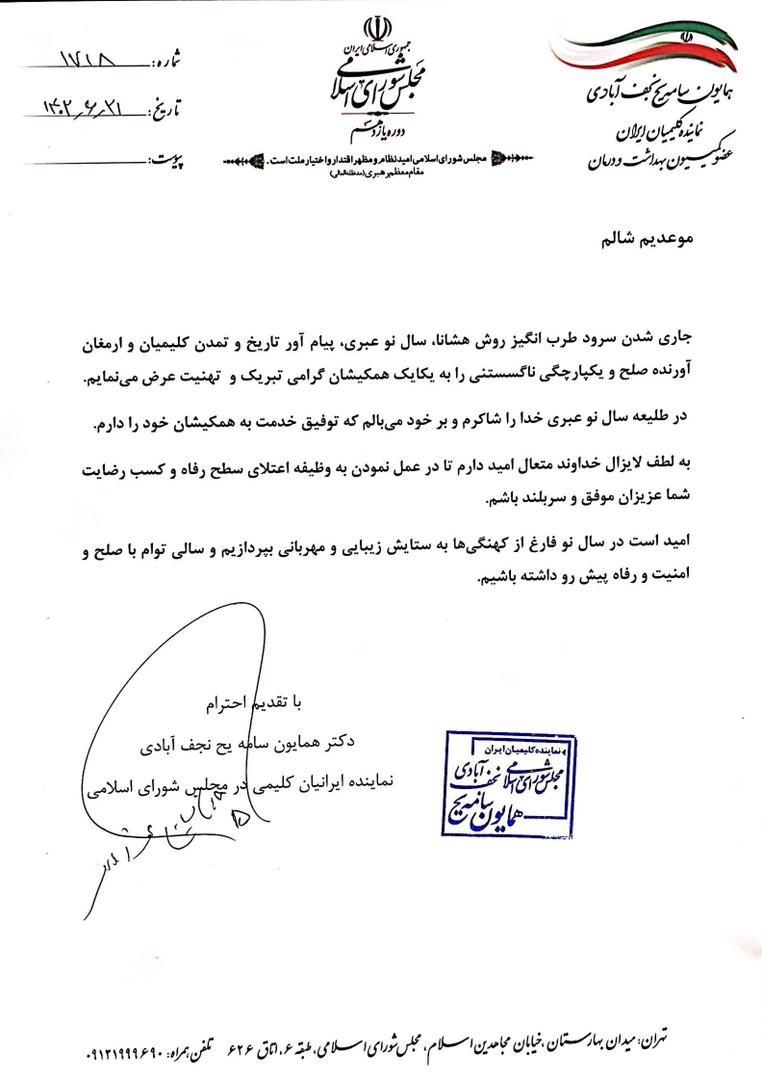 جمهوری اسلامی ایران
مجلس شورای اسلامی
دوره یازدهم
مجلس شورای اسلامی امید نظام و مظهر اقتدار و اختیار ملت است.
مقام معظم رهبری (مدظله العالی)
همایون سامه یح نجف آبادی
نماینده کلیمیان ایران
عضو کمیسیون بهداشت و درمان
شماره: ۱۷۱۸
تاریخ: ۱۴۰۲٫۶٫۲۱
پیوست:
موعدیم شالم
جاری شدن سرود طرب انگیز روش هشانا، سال نو عبری، پیام آور تاریخ و تمدن کلیمیان و ارمغان
آورنده صلح و یکپارچگی ناگسستنی را به یکایک همکیشان گرامی تبریک و تهنیت عرض می‌نمایم.
در طلیعه سال نو عبری خدا را شاکرم و بر خود می‌بالم که توفیق خدمت به همکیشان خود را دارم.
به لطف لایزال خداوند متعال امید دارم تا در عمل نمودن به وظیفه اعتلای سطح رفاه و کسب رضایت
شما عزیزان موفق و سربلند باشم.
امید است در سال نو فارغ از کهنگی‌ها به ستایش زیبایی و مهربانی بپردازیم و سالی توام با صلح و
امنیت و رفاه پیش رو داشته باشیم.
با تقدیم احترام
دکتر همایون سامه یح نجف آبادی
نماینده ایرانیان کلیمی در مجلس شورای اسلامی
نماینده کلیمیان ایران
مجلس شورای اسلامی
همایون سامه یح نجف آبادی
تهران: میدان بهارستان، خیابان مجاهدین اسلام، مجلس شورای اسلامی، طبقه ۶، اتاق ۶۲۶ تلفن همراه: ۰۹۱۲۱۹۹۹۶۹۰